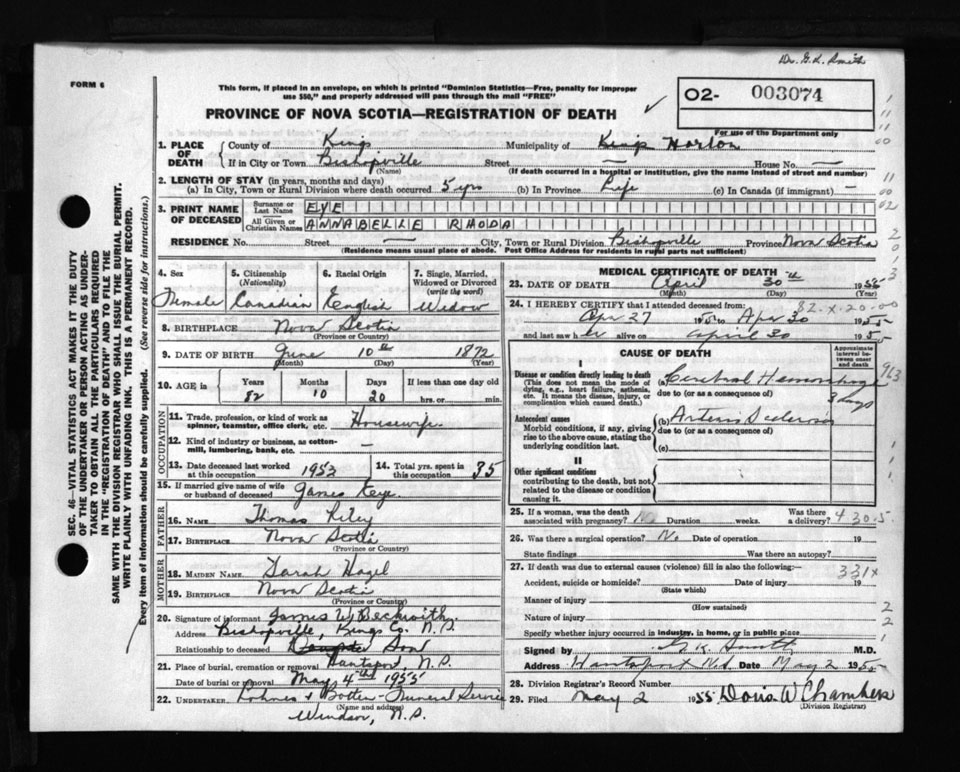 Dr. G. K. Smith
FORM 6
This form, if placed in an envelope, on which is printed "Dominion Statistics—Free, penalty for improper
use $50," and properly addressed will pass through the mail "FREE"
O2- 003074
PROVINCE OF NOVA SCOTIA—REGISTRATION OF DEATH
For use of the Department only
1. PLACE OF DEATH
County of Kings Municipality of Kings Horton
If in City or Town Bishopville Street — House No. —
(Name) (If death occurred in a hospital or institution, give the name instead of street and number)
2. LENGTH OF STAY (in years, months and days)
(a) In City, Town or Rural Division where death occurred 5 yrs (b) In Province Life (c) In Canada (if immigrant) —
3. PRINT NAME OF DECEASED
Surname or Last Name EYE
All Given or Christian Names ANNABELLE RHODA
RESIDENCE No. Street — City, Town or Rural Division Bishopville Province Nova Scotia
(Residence means usual place of abode. Post Office Address for residents in rural parts not sufficient)
4. Sex Female
5. Citizenship (Nationality) Canadian
6. Racial Origin English
7. Single, Married, Widowed or Divorced (write the word) Widow
8. BIRTHPLACE Nova Scotia
(Province or Country)
9. DATE OF BIRTH June 10th 1872
(Month) (Day) (Year)
10. AGE in Years 82 Months 10 Days 20 If less than one day old hrs. or min.
OCCUPATION
11. Trade, profession, or kind of work as spinner, teamster, office clerk, etc. Housewife
12. Kind of industry or business, as cotton-mill, lumbering, bank, etc. —
13. Date deceased last worked at this occupation 1953
14. Total yrs. spent in this occupation 35
15. If married give name of wife or husband of deceased James Eye
FATHER
16. NAME Thomas Riley
17. BIRTHPLACE Nova Scotia
(Province or Country)
MOTHER
18. MAIDEN NAME Sarah Hazel
19. BIRTHPLACE Nova Scotia
(Province or Country)
20. Signature of informant James W Beckwith
Address Bishopville, Kings Co. N.S.
Relationship to deceased Son
21. Place of burial, cremation or removal Hantsport, N.S.
Date of burial or removal May 4th 1955
22. UNDERTAKER Funeral Service
(Name and address)
Windsor, N.S.
MEDICAL CERTIFICATE OF DEATH
23. DATE OF DEATH April 30th 1955
(Month) (Day) (Year)
24. I HEREBY CERTIFY that I attended deceased from: 82-X-20-00
Apr 27 1955 to Apr 30 1955
and last saw her alive on April 30 1955
CAUSE OF DEATH
Approximate interval between onset and death
I
Disease or condition directly leading to death
(This does not mean the mode of dying, e.g., heart failure, asthenia, etc. It means the disease, injury, or complication which caused death.)
(a) Cerebral Hemorrhage
due to (or as a consequence of)
3 days
Antecedent causes
Morbid conditions, if any, giving rise to the above cause, stating the underlying condition last.
(b) Arterio Sclerosis
due to (or as a consequence of)
(c)
II
Other significant conditions
contributing to the death, but not related to the disease or condition causing it.
25. If a woman, was the death associated with pregnancy? No Duration weeks. Was there a delivery? 430.5
26. Was there a surgical operation? No Date of operation 19
State findings Was there an autopsy?
27. If death was due to external causes (violence) fill in also the following:— 331X
Accident, suicide or homicide? Date of injury 19
(State which)
Manner of injury
(How sustained)
Nature of injury
Specify whether injury occurred in industry, in home, or in public place
Signed by G. K. Smith M.D.
Address Hantsport N.S. Date May 2 1955
28. Division Registrar's Record Number
29. Filed May 2 1955 Doris W Chambers
(Division Registrar)
SEC. 46—VITAL STATISTICS ACT MAKES IT THE DUTY
OF THE UNDERTAKER OR PERSON ACTING AS UNDER-
TAKER TO OBTAIN ALL THE PARTICULARS REQUIRED
IN THE "REGISTRATION OF DEATH" AND TO FILE THE
SAME WITH THE DIVISION REGISTRAR WHO SHALL ISSUE THE BURIAL PERMIT.
WRITE PLAINLY WITH UNFADING INK. THIS IS A PERMANENT RECORD.
Every item of information should be carefully supplied. (See reverse side for instructions.)